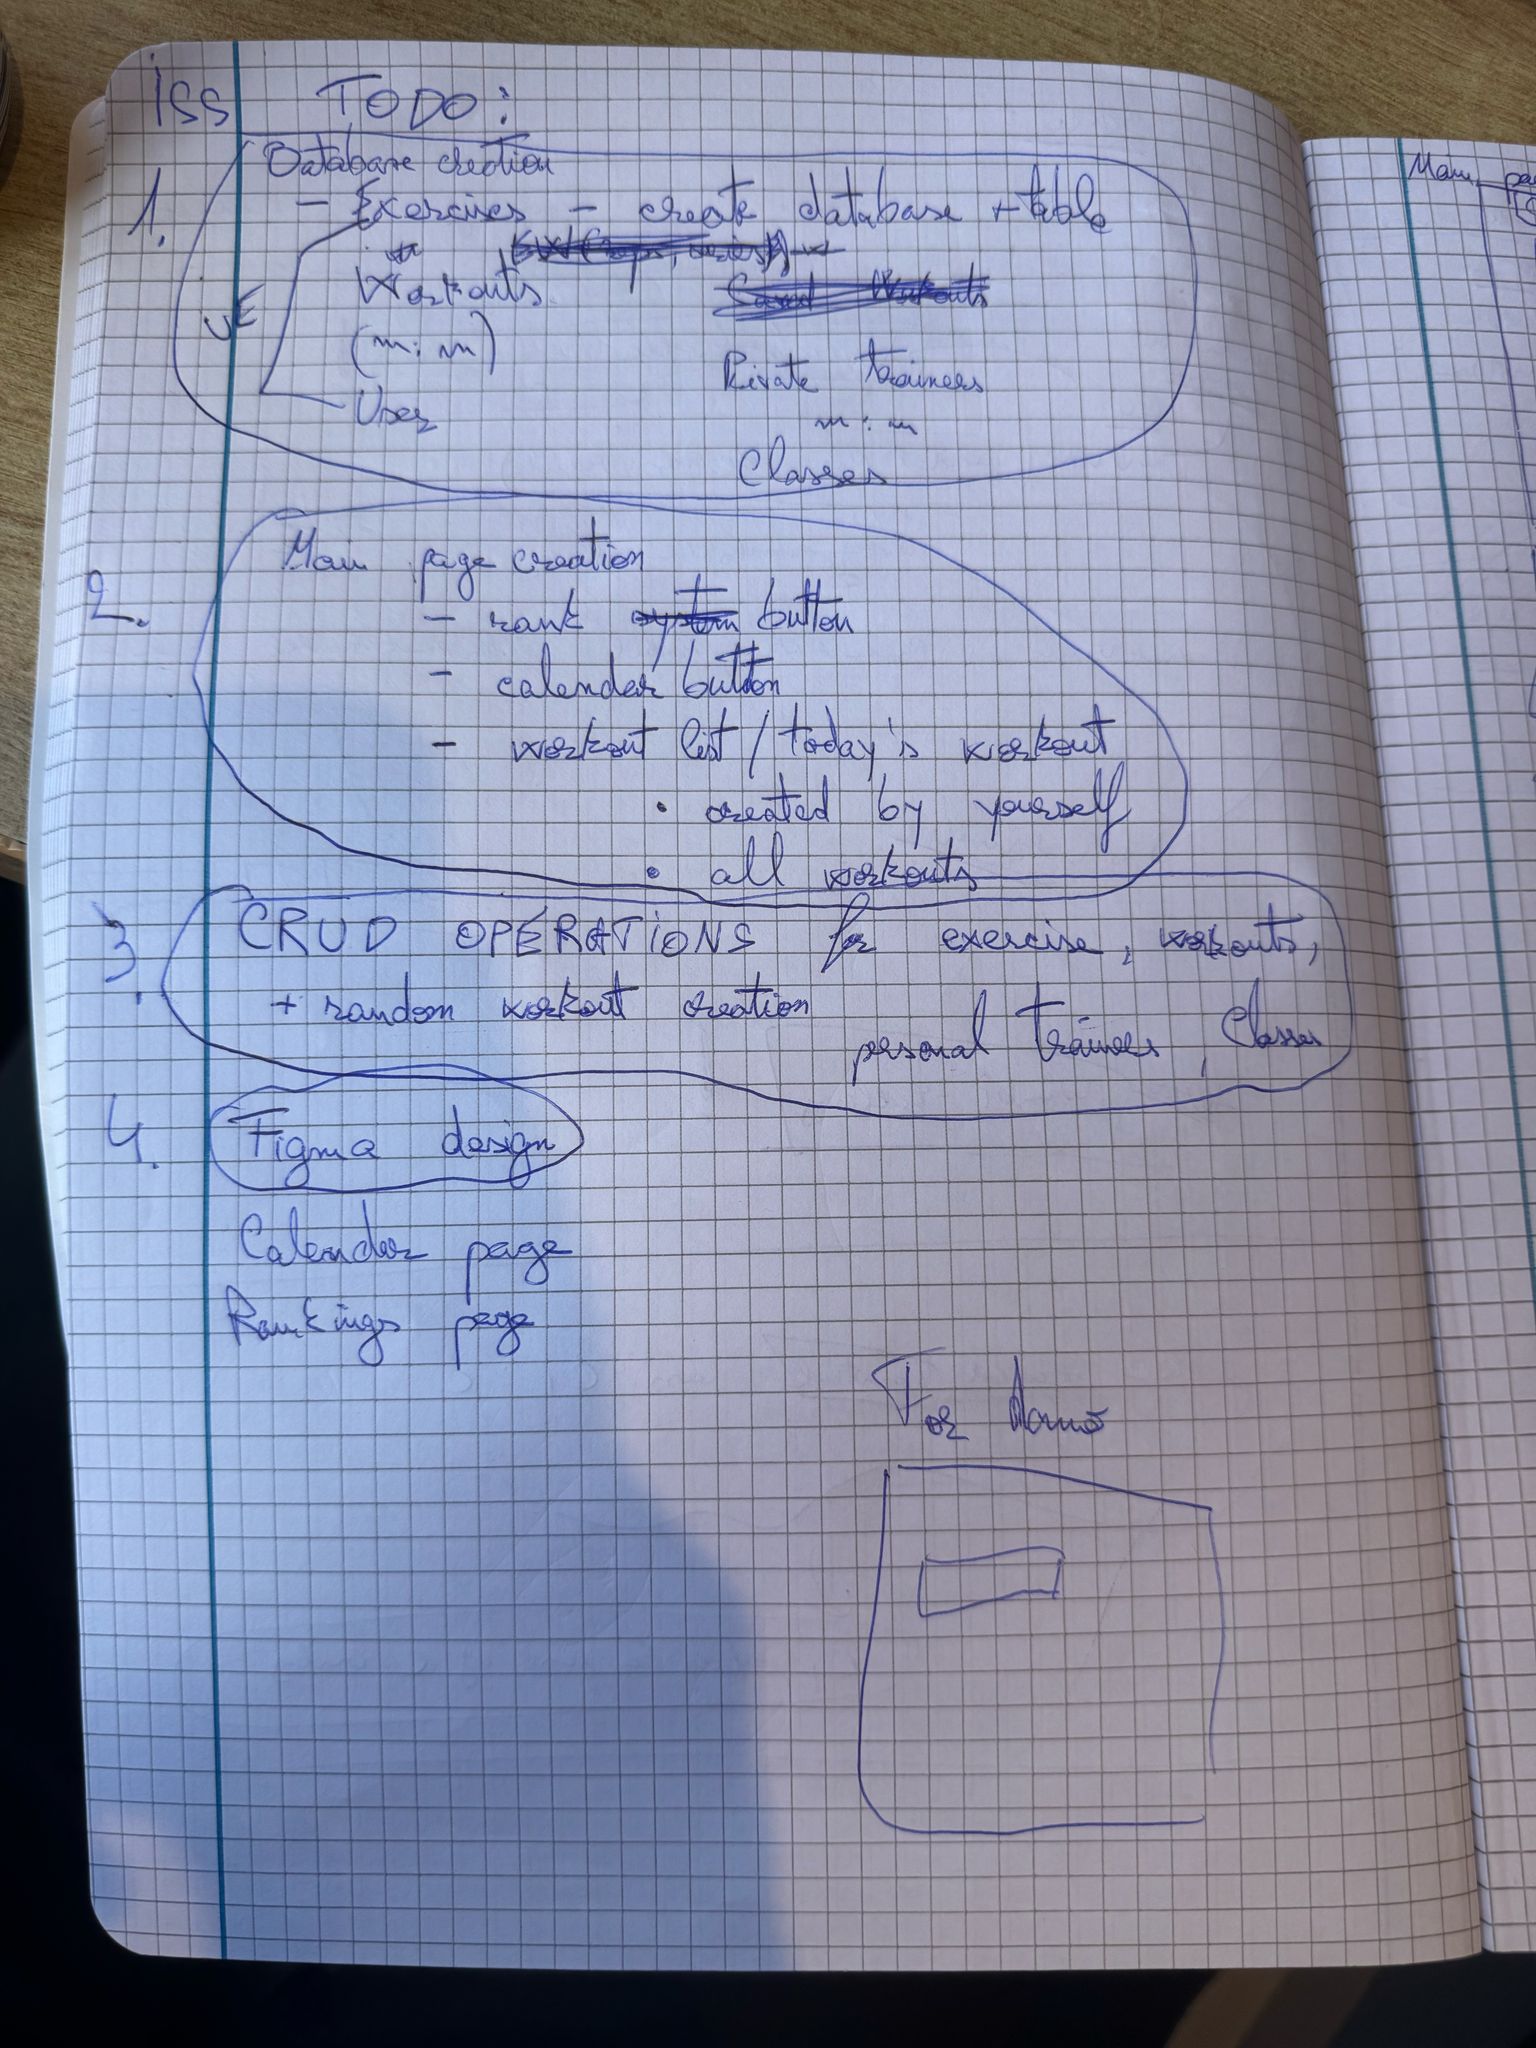 ISS TODO:
1. Database creation
- Exercises - create database + table
Workouts
(m:m)
UE
User
Private trainers
m:m
Classes
2. Main page creation
- rank system button
- calender button
- workout list / today's workout
• created by yourself
• all workouts
3. CRUD OPERATIONS for exercise, workouts,
+ random workout creation
personal trainers, Classes
4. Figma design
Calender page
Rankings page
For
Main